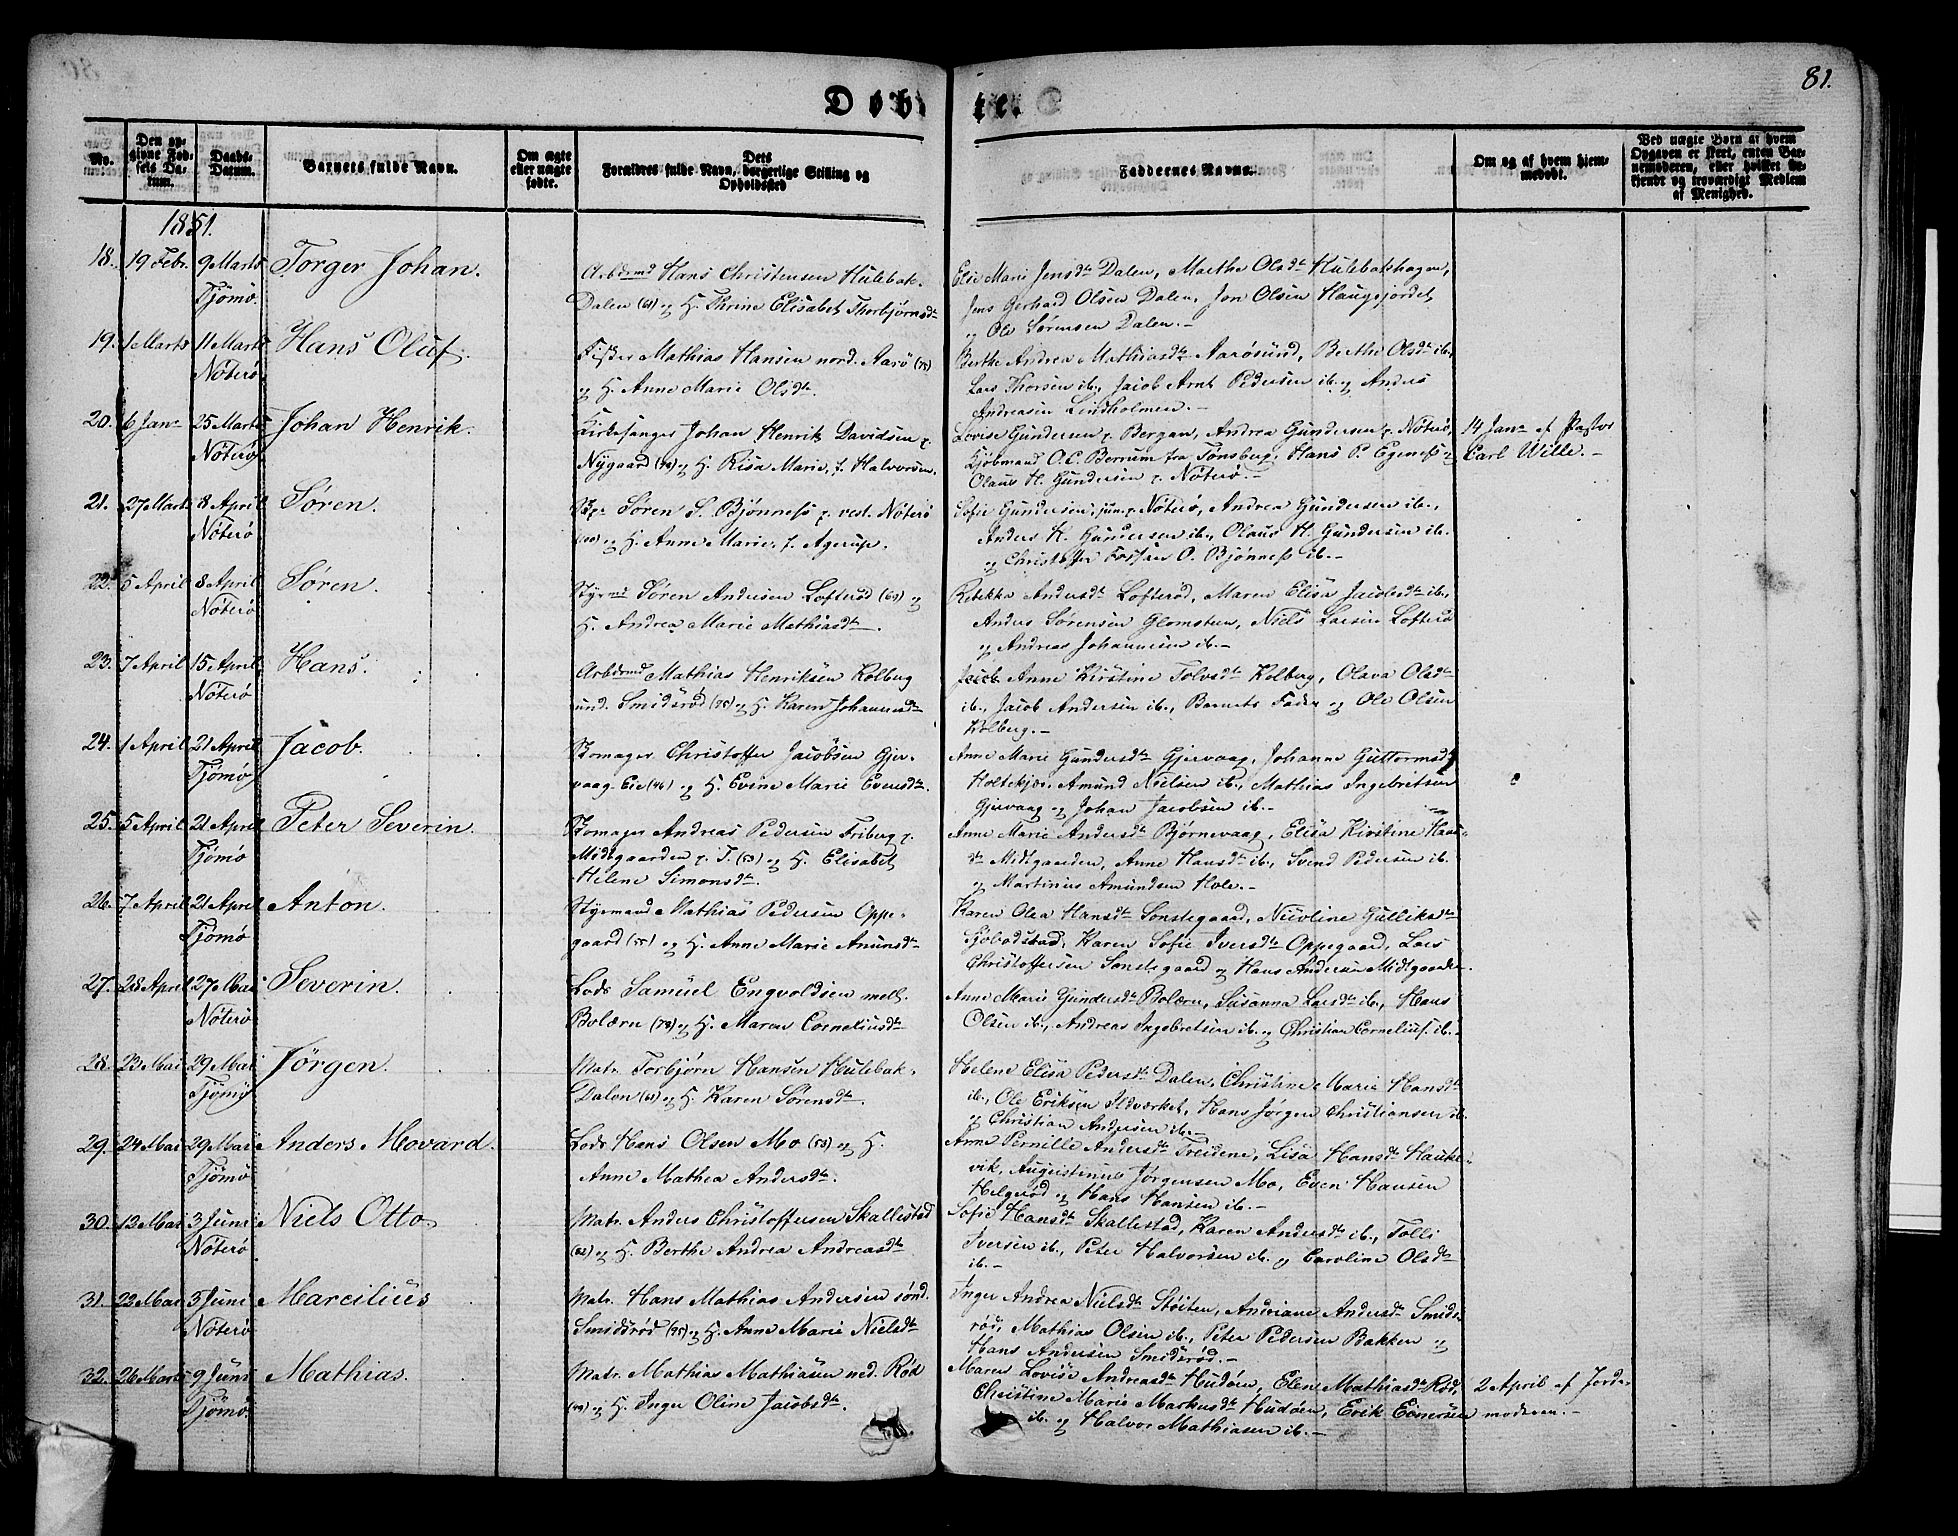 81.
Døbte.
No.
Den opgivne Fødsels Datum.
Daabs-Datum.
Barnets fulde Navn.
Om ægte eller uægte fødte.
Forældres fulde Navn, Dets borgerlige Stilling og Opholdssted
Faddernes Navne.
Om og af hvem hjemmedøbt.
Ved uægte Børn af hvem Opgaven er skeet, enten Barnemoderen, eller hvilket bekjendt og troværdigt Medlem af Menighed.
1851.
18. 19 Febr. 9 Marts Tjömö. Torger Johan.
Arbdsmd Hans Christensen Hulebak-
Dalen (61) og H. Thrine Elisabet Thorbjørnsdtr
Elie Marie Jensdtr Dalen, Marthe Olsdtr Hulebakhagen,
Jens Gerhard Olsen Dalen, Jon Olsen Haugsjordet
og Ole Sørensen Dalen.-
19. 1 Marts 11 Marts Nöterö. Hans Oluf.
Fisker Mathias Hansen nord. Aarö (78)
og H. Anne Marie Olsdtr.
Berthe Andrea Mathiasdtr Aarösund, Berthe Olsdtr ib.
Lars Thorsen ib., Jacob Arnt Pedersen ib. og Anders
Andreasen Lindholmen.-
20. 6 Janr 25 Marts Nöterö. Johan Henrik.
Kirkesanger Johan Henrik Davidsen p.
Nygaard og H. Risa Marie, f. Halvorsen.
Lovise Gundersen p. Bergan, Andrea Gundersen p. Nöterö,
Kjöbmand O. C. Berrum fra Tønsberg, Hans P. Egeness og
Olaus H. Gundersen p. Nöterö.-
14 Janr af Pastor
Carl Wille.-
21. 27 Marts 8 April Nöterö Sören.
Skpr Sören S. Bjönness p. vest. Nöterö
og H. Anne Marie, f. Agerup.
Sofie Gundersen, jun. p. Nöterö, Andrea Gundersen ib.
Anders H. Gundersen ib., Olaus H. Gundersen ib.
og Christoffer O. Bjönness ib.-
22. 5 April 8 April Nöterö Sören.
Styrmd Sören Andersen Lofteröd (69) og
H. Andrea Marie Mathiasdtr.
Rebekka Andersdtr Lofteröd, Maren Elisa Jacobsdtr ib.,
Anders Sörensen Glomsten, Niels Larsen Lofteröd
og Andreas Johannesen ib.-
23. 7 April 15 April Nöterö Hans.
Arbdsmd Mathias Henriksen Kolberg
und. Smidsröd (75) og H. Karen Johannesdtr
Anne Kirstine Tolvsdtr Kolberg, Olava Olsdtr
ib., Jacob Andersen ib., Barnets Fader og Ole Olsen
Kolberg.-
24. 1 April 21 April Tjömö Jacob.
Skomager Christoffer Jacobsen Gjer-
vaag-Eie (46) og H. Evine Marie Evensdtr.
Anne Marie Gundersdtr Gjervaag, Johanne Guttormsdtr
Holtekjær, Amund Nielsen ib., Mathias Ingebretsen
Gjervaag og Johan Jacobsen ib.-
25. 5 April 21 April Tjömö Peter Severin.
Skomager Andreas Pedersen Friberg p.
Midtgaarden p. T. (53) og H. Elisabet
Helene Simonsdtr.
Anne Marie Andersdtr Björnevaag, Elisa Kirstine Hans-
dtr Midtgaarden, Anne Hansdtr ib., Svend Pedersen ib.
og Martinus Amundsen Hole.-
26. 7 April 21 April Tjömö Anton.
Styrmand Mathias Pedersen Oppe-
gaard (55) og H. Anne Marie Amunsdtr
Karen Olea Hansdtr Sonstegaard, Nicoline Gulliksdtr
Sjöbodstad, Karen Sofie Iversdtr Oppegaard, Lars
Christoffersen Sonstegaard og Hans Andersen Midtgaarden
27. 28 April 27 Mai Nöterö Severin.
Lods Samuel Engvoldsen mell.
Bolærn (78) og H. Maren Corneliusdtr
Anne Marie Gundersdtr Bolærn, Susanna Larsdtr ib., Hans
Olsen ib., Andreas Ingebretsen ib. og Christian Cornelius. ib.-
28. 23 Mai 29 Mai Tjömö Jörgen.
Matr. Torbjörn Hansen Hulebak-
Dalen (61) og H. Karen Sörensdtr.
Helene Elisa Pedersdtr Dalen, Christine Marie Hansdtr
ib., Ole Eriksen Sidværket, Hans Jörgen Christiansen ib.
og Christian Andersen ib.-
29. 24 Mai 29 Mai Tjömö Anders Hovard.
Lods Hans Olsen Mo (53) og H.
Anne Mathea Andersdtr.
Anne Pernille Andersdtr Treidene, Lisa Hansdtr Hauke-
vik, Augustinus Jörgensen Mo, Even Hansen
Helgeröd og Hans Hansen ib.-
30. 12 Mai 3 Juni Nöterö Niels Otto
Matr. Anders Christoffersen Skallestad
(82) og H. Berthe Andrea Andreasdtr
Sofie Hansdtr Skallestad, Karen Andersdtr ib., Tolli
Iversen ib., Peter Halvorsen ib. og Caroline Olsdtr
ib.-
31. 22 Mai 3 Juni Nöterö Marcilius
Matr. Hans Mathias Andersen sönd.
Smidsröd (75) og H. Anne Marie Nielsdtr
Inger Andrea Nielsdtr Stöiten, Andriane Andersdtr Smids-
röd, Mathias Olsen ib., Peter Pedersen Bakken og
Hans Andersen Smidsröd.-
32. 26 Marts 9 Juni Tjömö. Mathias.
Matr. Mathias Mathiasen ned. Röd
(49) og H. Inger Oline Jacobsdtr.
Maren Lovise Andreasdtr Hudöen, Elen Mathiasdtr Röd,
Christine Marie Markusdtr Hudöen, Erik Einersen
ib. og Halvor Mathiasen ib.-
2 April af Jorde-
moderen.-